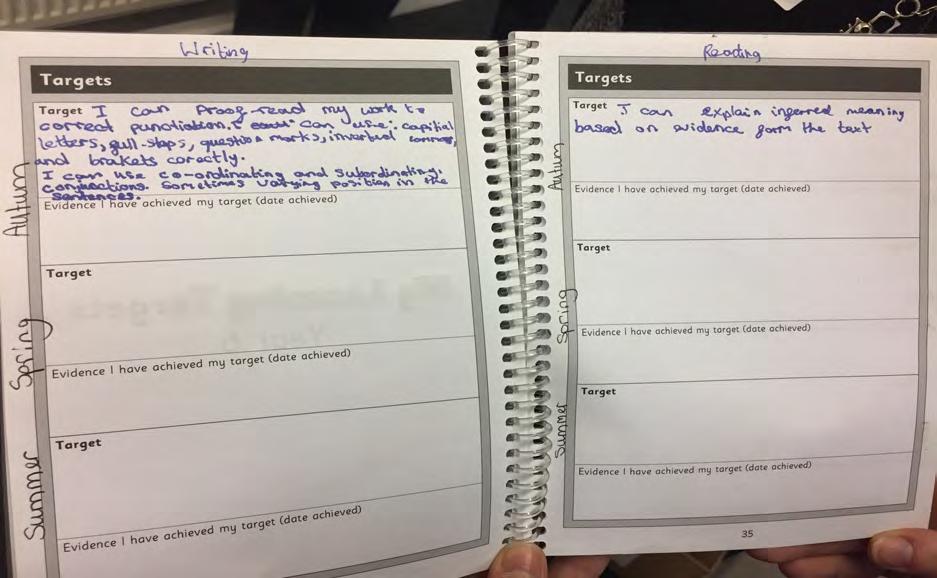 Writing
Targets
Target I can Proof-read my work to
correct punctiation. I can use: capitial
letters, full-stops, question marks, invertud commas,
and brakets corectly.
I can use co-ordinating and subordinating.
conjunctions. Sometimes varying position in the
sentences.
Autumn
Evidence I have achieved my target (date achieved)
Target
Spring
Evidence I have achieved my target (date achieved)
Target
Summer
Evidence I have achieved my target (date achieved)
Reading
Targets
Target I can explain inferred meaning
based on evidence form the text
Autumn
Evidence I have achieved my target (date achieved)
Target
Spring
Evidence I have achieved my target (date achieved)
Target
Summer
Evidence I have achieved my target (date achieved)
35